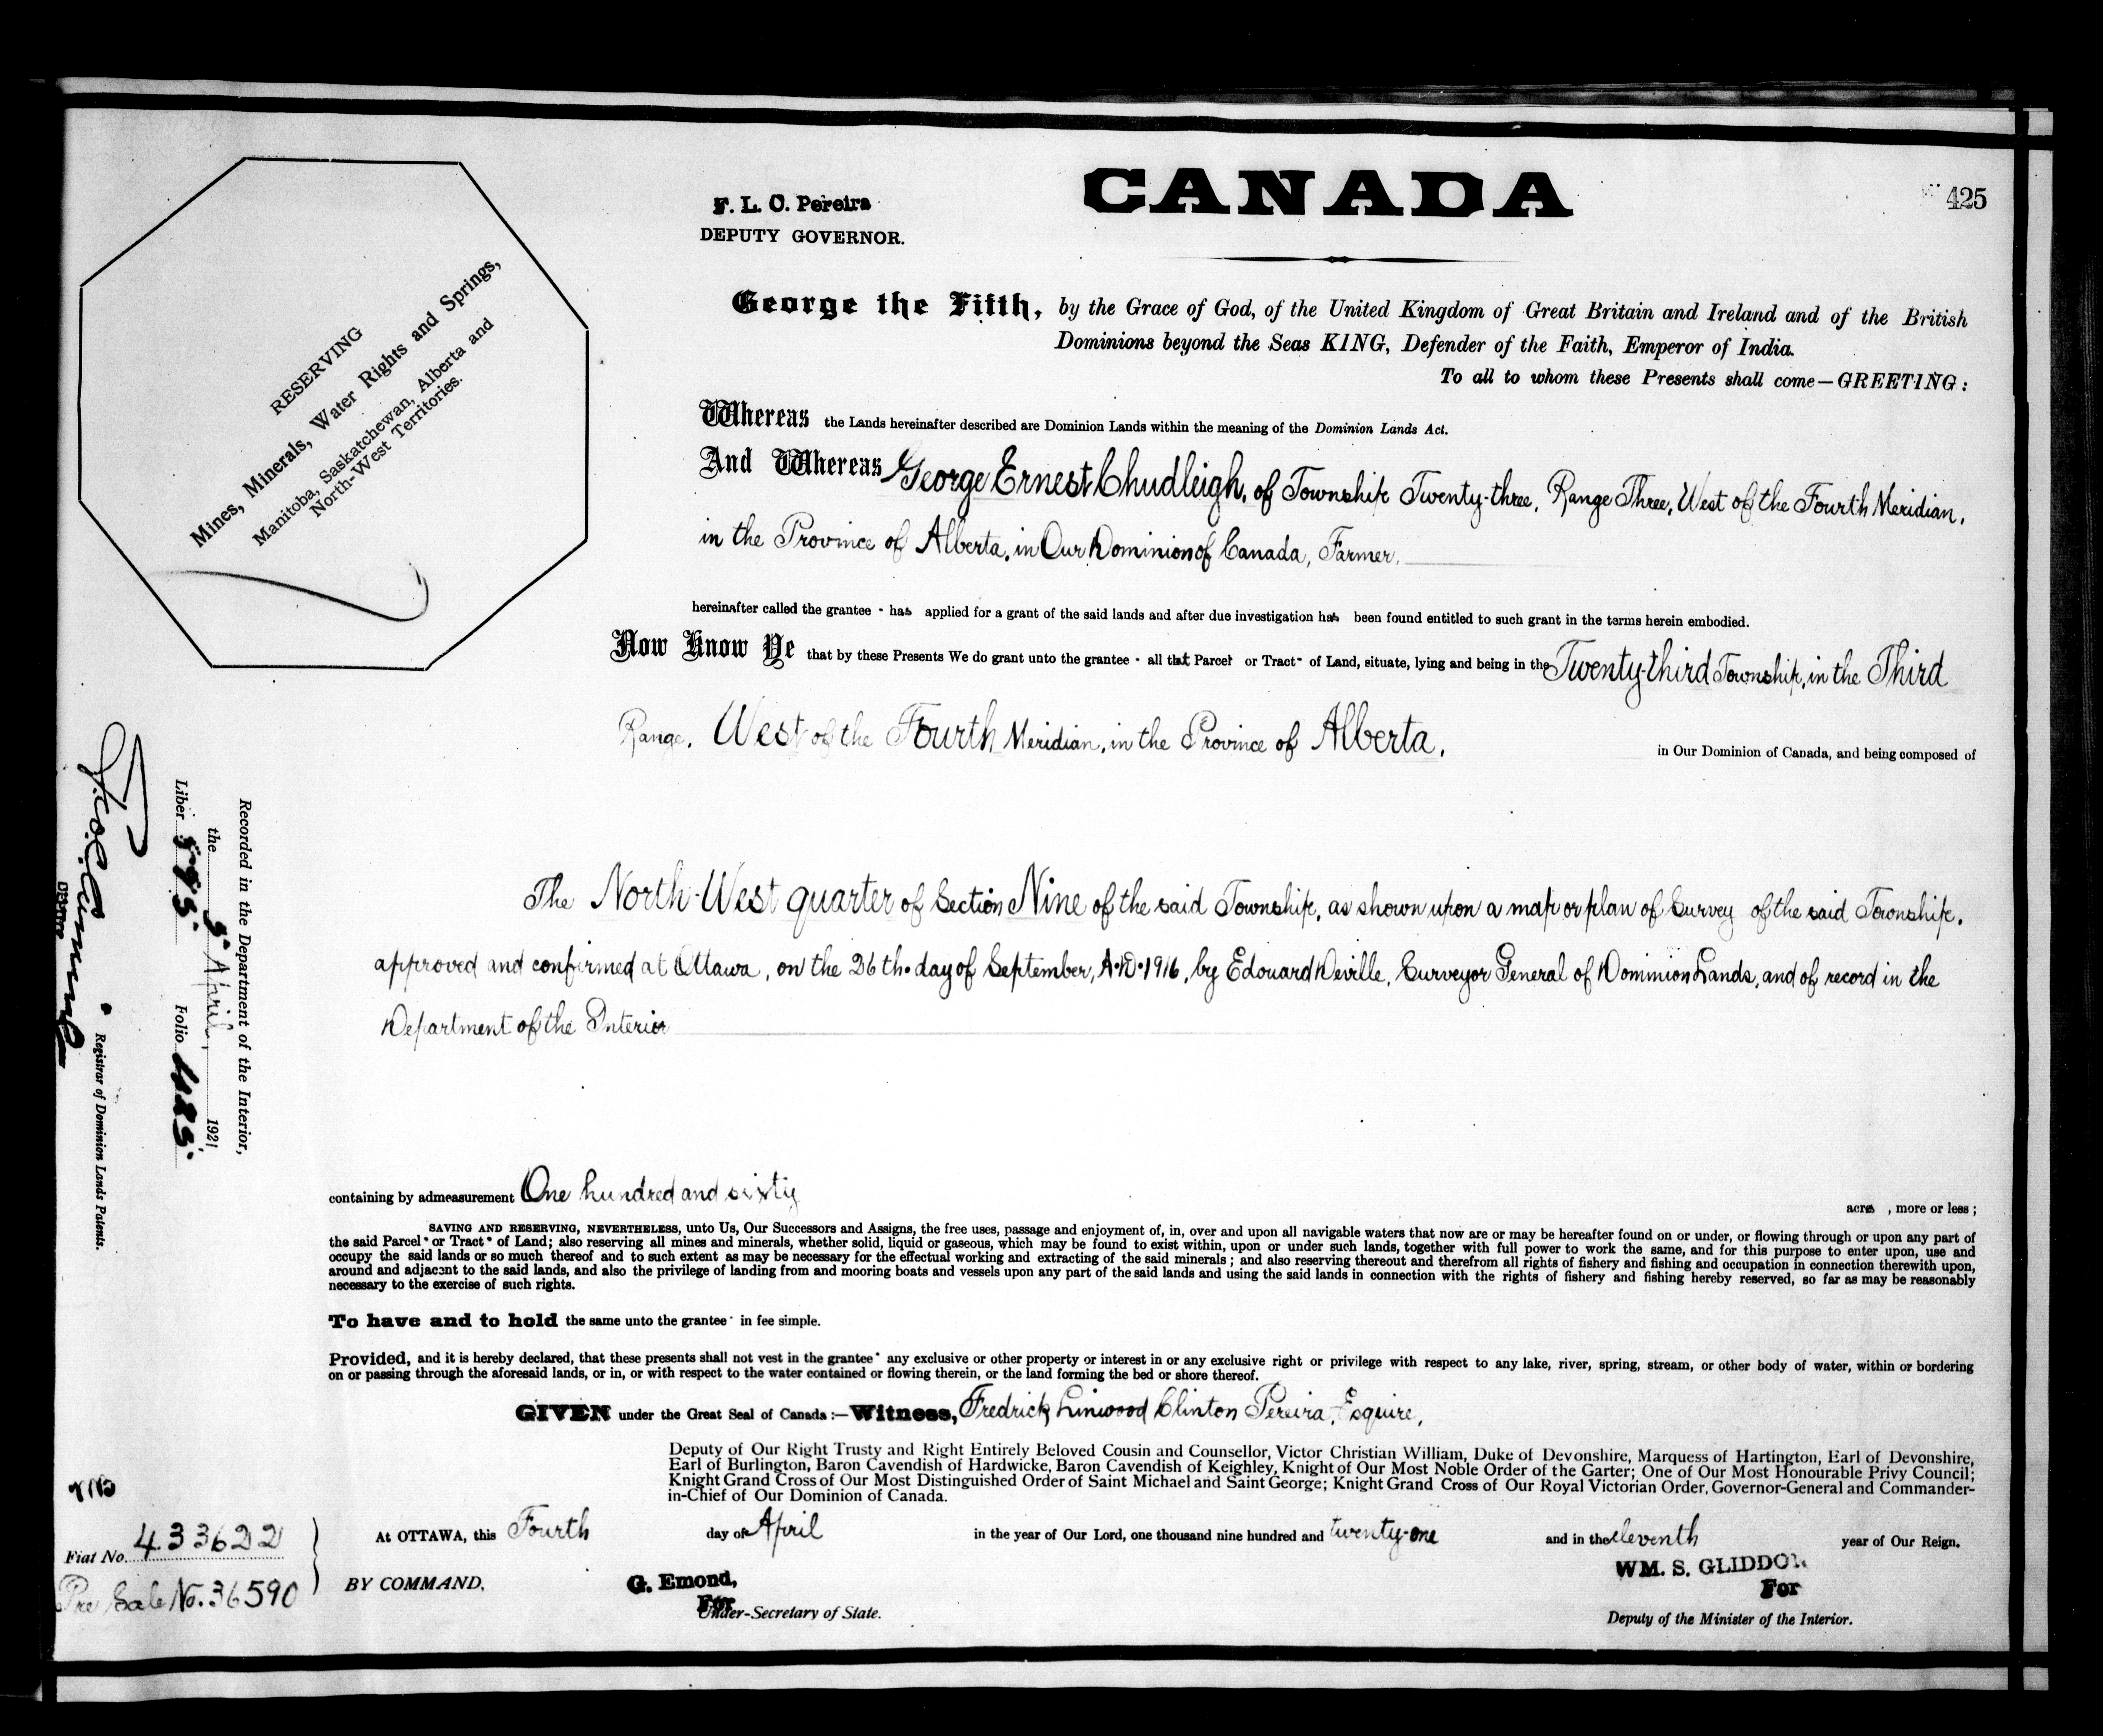 F. L. C. Pereira
DEPUTY GOVERNOR.
CANADA
425
RESERVING
Mines, Minerals, Water Rights and Springs,
Manitoba, Saskatchewan, Alberta and
North-West Territories.
George the Fifth, by the Grace of God, of the United Kingdom of Great Britain and Ireland and of the British
Dominions beyond the Seas KING, Defender of the Faith, Emperor of India.
To all to whom these Presents shall come—GREETING:
Whereas the Lands hereinafter described are Dominion Lands within the meaning of the Dominion Lands Act.
And Whereas George Ernest Chudleigh, of Township Twenty-three, Range Three, West of the Fourth Meridian,
in the Province of Alberta, in Our Dominion of Canada, Farmer,
hereinafter called the grantee - has applied for a grant of the said lands and after due investigation has been found entitled to such grant in the terms herein embodied.
Now Know Ye that by these Presents We do grant unto the grantee - all that Parcel or Tract - of Land, situate, lying and being in the Twenty-third Township, in the Third
Range, West of the Fourth Meridian, in the Province of Alberta, in Our Dominion of Canada, and being composed of
The North-West quarter of Section Nine of the said Township, as shown upon a map or plan of Survey of the said Township,
approved and confirmed at Ottawa, on the 26th day of September, A.D. 1916, by Edouard Deville, Surveyor General of Dominion Lands, and of record in the
Department of the Interior
containing by admeasurement One hundred and sixty acres , more or less;
SAVING AND RESERVING, NEVERTHELESS, unto Us, Our Successors and Assigns, the free uses, passage and enjoyment of, in, over and upon all navigable waters that now are or may be hereafter found on or under, or flowing through or upon any part of
the said Parcel or Tract of Land; also reserving all mines and minerals, whether solid, liquid or gaseous, which may be found to exist within, upon or under such lands, together with full power to work the same, and for this purpose to enter upon, use and
occupy the said lands or so much thereof and to such extent as may be necessary for the effectual working and extracting of the said minerals; and also reserving thereout and therefrom all rights of fishery and fishing and occupation in connection therewith upon,
around and adjacent to the said lands, and also the privilege of landing from and mooring boats and vessels upon any part of the said lands and using the said lands in connection with the rights of fishery and fishing hereby reserved, so far as may be reasonably
necessary to the exercise of such rights.
To have and to hold the same unto the grantee in fee simple.
Provided, and it is hereby declared, that these presents shall not vest in the grantee any exclusive or other property or interest in or any exclusive right or privilege with respect to any lake, river, spring, stream, or other body of water, within or bordering
on or passing through the aforesaid lands, or in, or with respect to the water contained or flowing therein, or the land forming the bed or shore thereof.
GIVEN under the Great Seal of Canada:—Witness, Fredrick Linwood Clinton Pereira, Esquire,
Deputy of Our Right Trusty and Right Entirely Beloved Cousin and Counsellor, Victor Christian William, Duke of Devonshire, Marquess of Hartington, Earl of Devonshire,
Earl of Burlington, Baron Cavendish of Hardwicke, Baron Cavendish of Keighley, Knight of Our Most Noble Order of the Garter; One of Our Most Honourable Privy Council;
Knight Grand Cross of Our Most Distinguished Order of Saint Michael and Saint George; Knight Grand Cross of Our Royal Victorian Order, Governor-General and Commander-
in-Chief of Our Dominion of Canada.
At OTTAWA, this Fourth day of April in the year of Our Lord, one thousand nine hundred and twenty-one and in the eleventh year of Our Reign.
BY COMMAND,
G. Emond,
For
Under-Secretary of State.
WM. S. GLIDDON
For
Deputy of the Minister of the Interior.
Fiat No. 433622
Pre Sale No. 36590
Recorded in the Department of the Interior,
the 5 April, 1921,
Liber 595. Folio 425.
Registrar of Dominion Lands Patents.